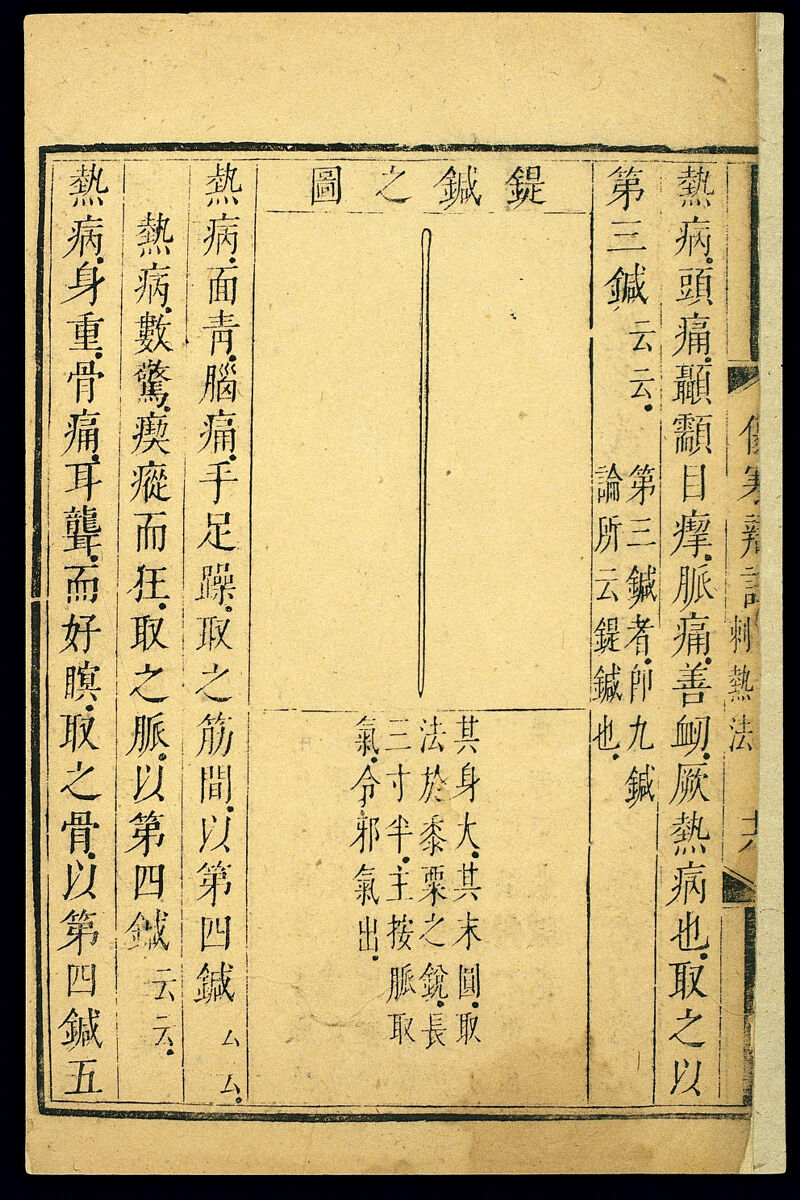 熱病。頭痛。顳顬目瘈。脈痛。善衂。厥熱病也。取之以
第三鍼云云。
第三鍼者。即九鍼
論所云鍉鍼也。
鍉鍼之圖
其身大。其末圓。取
法於黍粟之銳。長
三寸半。主按脈取
氣。令邪氣出。
熱病。面青。腦痛。手足躁。取之筋間。以第四鍼ムム。
熱病。數驚。瘈瘲而狂。取之脈。以第四鍼云云。
熱病。身重。骨痛。耳聾。而好瞑。取之骨。以第四鍼五
刺熱法